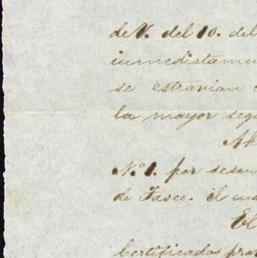 de V. del 10. del
inmediatame
se estravian
la mayor segu
Nº 1. por sesen
de Tasco. il
El
Certificados pro